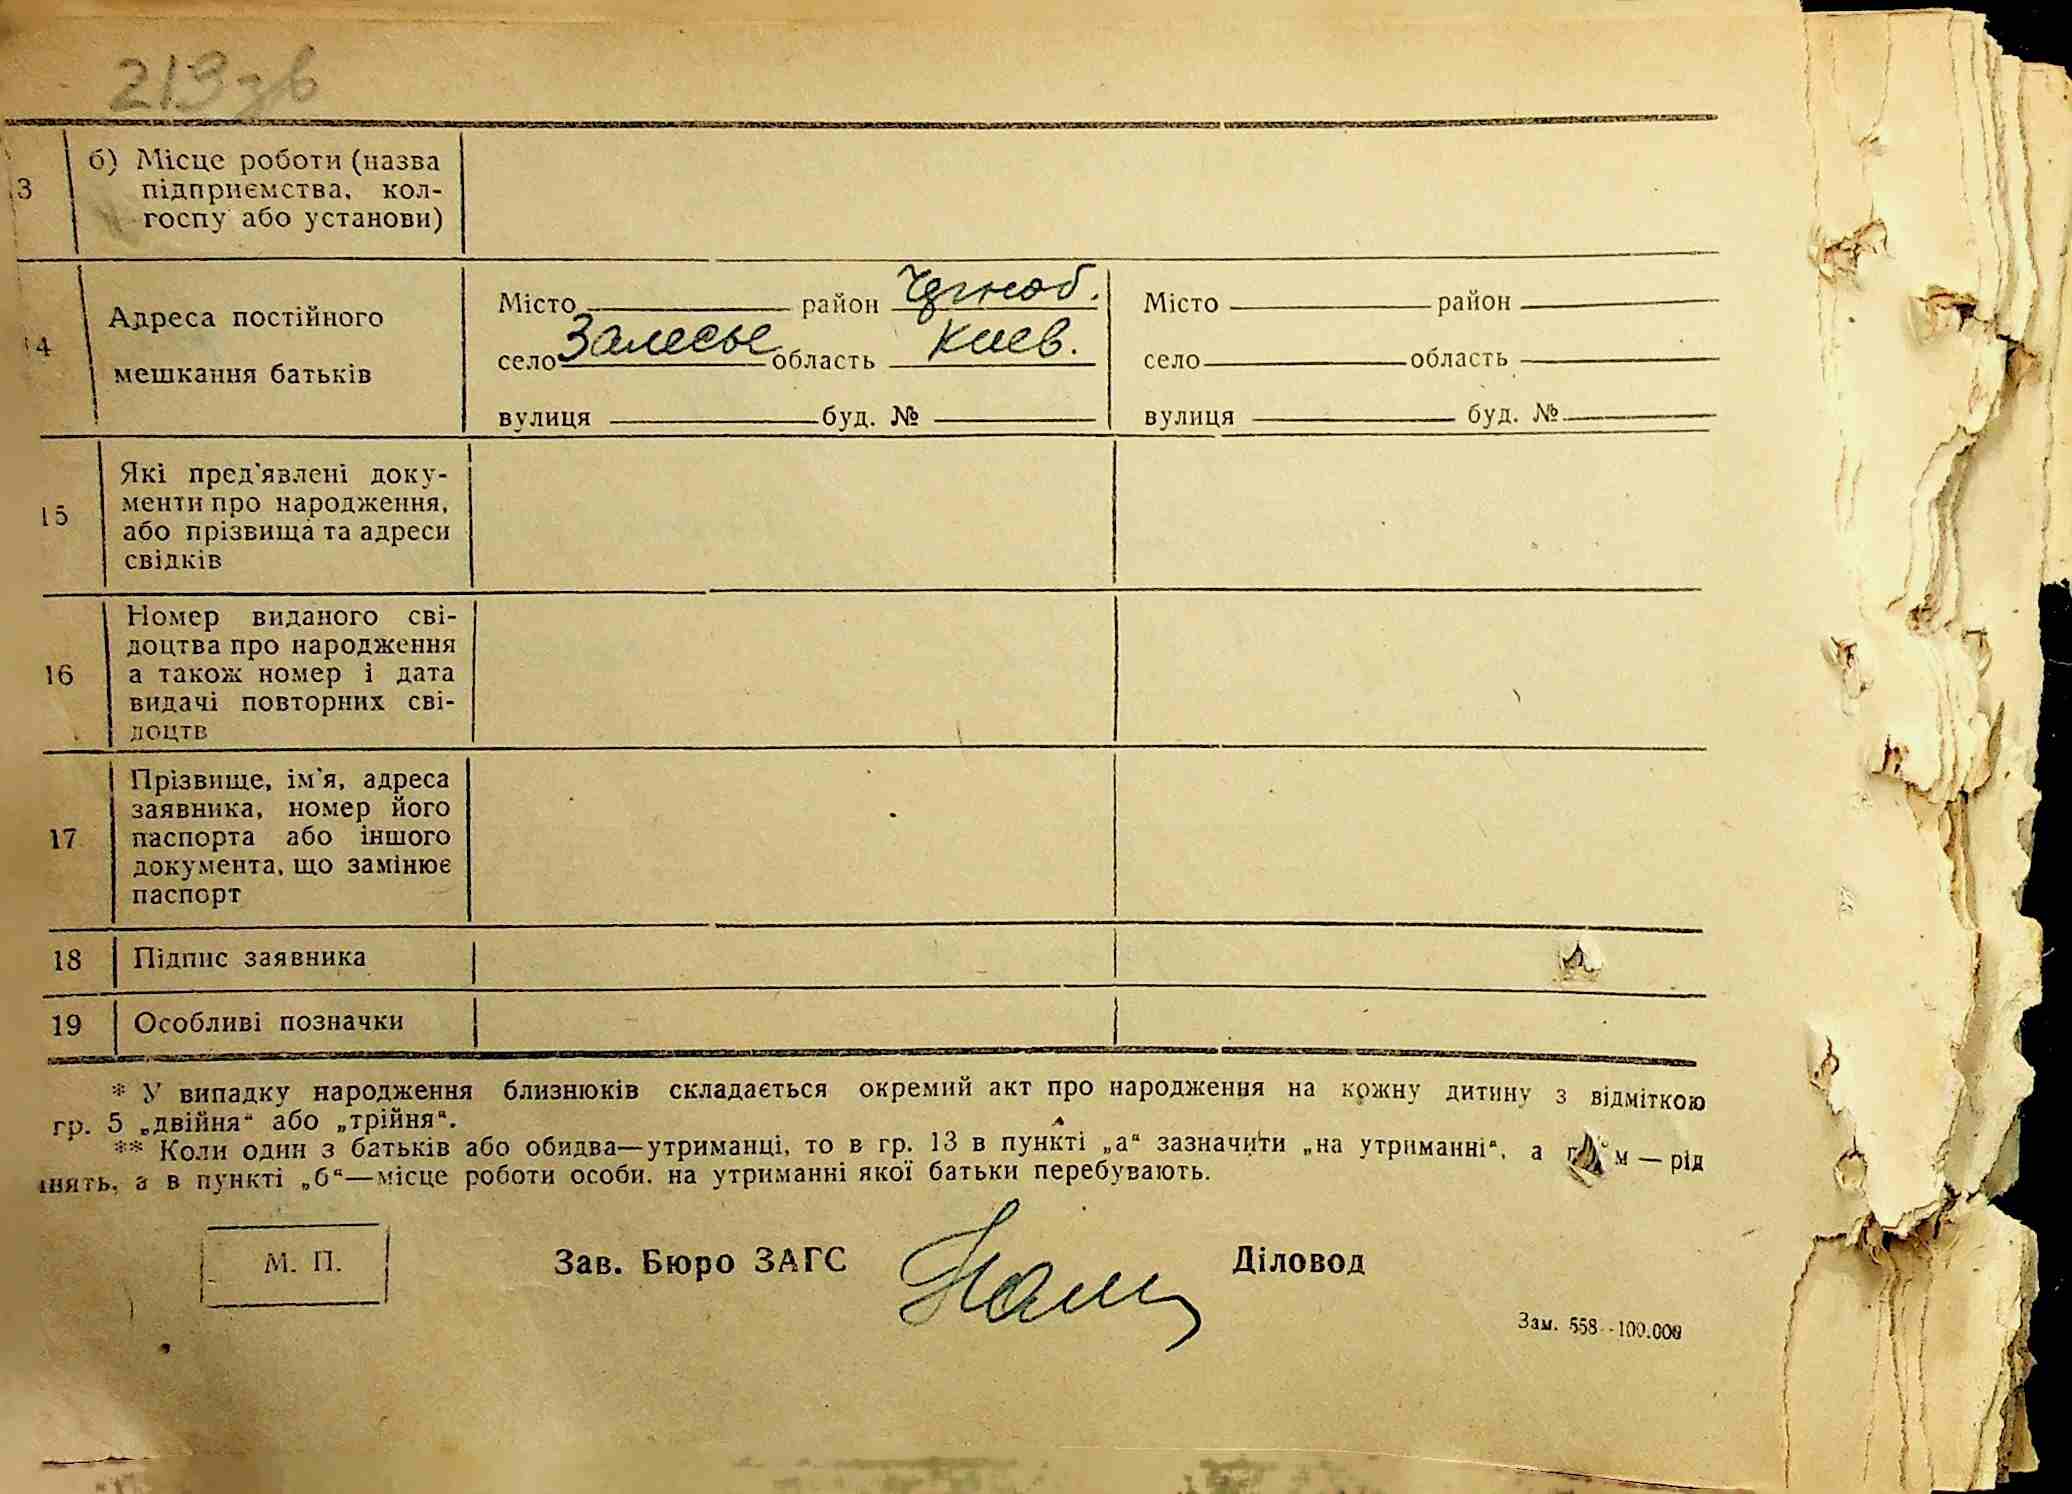 219зв
13 б) Місце роботи (назва
підприємства, кол-
госпу або установи)
14 Адреса постійного
мешкання батьків
Місто район Черноб.
село Залесье область Киев.
вулиця буд. №
Місто район
село область
вулиця буд. №
15 Які пред'явлені доку-
менти про народження,
або прізвища та адреси
свідків
16 Номер виданого сві-
доцтва про народження
а також номер і дата
видачі повторних сві-
доцтв
17 Прізвище, ім'я, адреса
заявника, номер його
паспорта або іншого
документа, що замінює
паспорт
18 Підпис заявника
19 Особливі позначки
* У випадку народження близнюків складається окремий акт про народження на кожну дитину з відміткою
гр. 5 „двійня“ або „трійня“.
** Коли один з батьків або обидва—утриманці, то в гр. 13 в пункті „а“ зазначити „на утриманні“, а — рід
нять, а в пункті „б“—місце роботи особи, на утриманні якої батьки перебувають.
М. П.
Зав. Бюро ЗАГС
Діловод
Зам. 558--100.000